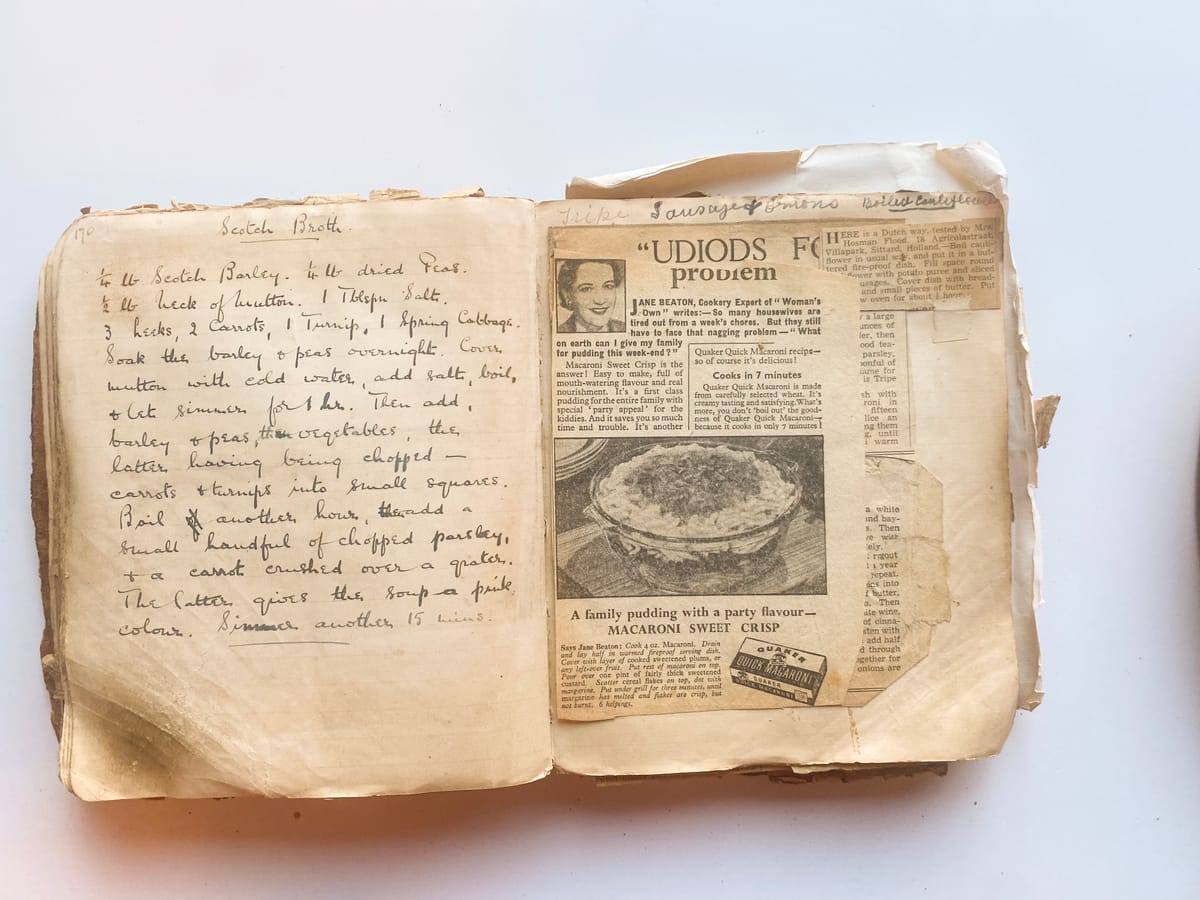 170
Scotch Broth.
¼ lb Scotch Barley. ¼ lb dried Peas.
½ lb neck of mutton. 1 Tblspn Salt.
3 leeks, 2 Carrots, 1 Turnip, 1 Spring Cabbage.
Soak the barley & peas overnight. Cover
mutton with cold water, add salt, boil,
& let simmer for 1 hr. Then add,
barley & peas, then vegetables, the
latter having being chopped —
carrots & turnips into small squares.
Boil another hour, add a
small handful of chopped parsley,
& a carrot crushed over a grater.
The latter gives the soup a pink
colour. Simmer another 15 mins.
Tripe Sausage & Onions Boiled Cauliflower
"UDIODS FO
problem
JANE BEATON, Cookery Expert of "Woman's
Own" writes:—So many housewives are
tired out from a week's chores. But they still
have to face that nagging problem—"What
on earth can I give my family
for pudding this week-end?"
Macaroni Sweet Crisp is the
answer! Easy to make, full of
mouth-watering flavour and real
nourishment. It's a first class
pudding for the entire family with
special 'party appeal' for the
kiddies. And it saves you so much
time and trouble. It's another
Quaker Quick Macaroni recipe—
so of course it's delicious!
Cooks in 7 minutes
Quaker Quick Macaroni is made
from carefully selected wheat. It's
creamy tasting and satisfying. What's
more, you don't 'boil out' the good-
ness of Quaker Quick Macaroni—
because it cooks in only 7 minutes!
A family pudding with a party flavour—
MACARONI SWEET CRISP
Says Jane Beaton: Cook 4 oz. Macaroni. Drain
and lay half in warmed fireproof serving dish.
Cover with layer of cooked sweetened plums, or
any left-over fruit. Put rest of macaroni on top.
Pour over one pint of fairly thick sweetened
custard. Scatter cereal flakes on top, dot with
margarine. Put under grill for three minutes, until
margarine has melted and flakes are crisp, but
not burnt. 6 helpings.
QUAKER
QUICK MACARONI
QUAKER
QUICK MACARONI
HERE is a Dutch way, tested by Mrs.
Hosman Flood, 18 Agricolastraat,
Villapark, Sittard, Holland.—Boil cauli-
flower in usual way, and put it in a but-
tered fire-proof dish. Fill space round
flower with potato puree and sliced
sausages. Cover dish with bread-
and small pieces of butter. Put
w oven for about ½ hour.
y a large
unces of
er, then
ood tea-
parsley,
oonful of
ame for
is Tripe
sh with
roni in
fifteen
lice an
ng them
g, until
warm
a white
and bay-
s. Then
re with
ely.
ragout
a year
repeat.
into
f butter,
o. Then
ite wine,
of cinna-
sten with
add half
d through
gether for
onions are